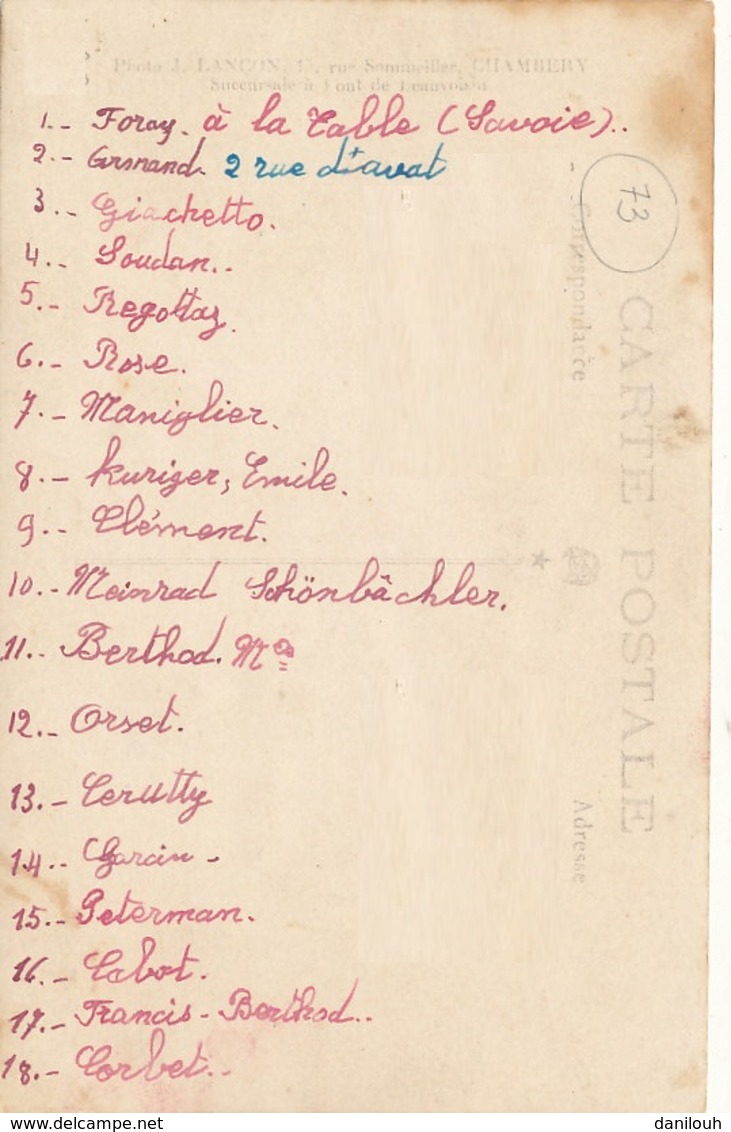 Photo J. LANÇON, 13, rue Sommeiller, CHAMBERY
Succursale à Pont de Beauvoisin
1.- Foray. à la Table (Savoie)..
2.- Grmand. 2 rue d'avat
3.- Giachetto.
4.- Soudan..
5.- Regottaz.
6.- Rose.
7.- Maniglier.
8.- Kuriger, Emile.
9.- Clément.
10.- Meinrad Schönbächler.
11.- Berthod. Ma
12.- Orset.
13.- Cerutty
14.- Garcin -
15.- Peterman.
16.- Cabot.
17.- Francis - Berthod..
18.- Corbet..
73
Correspondance
CARTE POSTALE
Adresse
www.delcampe.net
danilouh